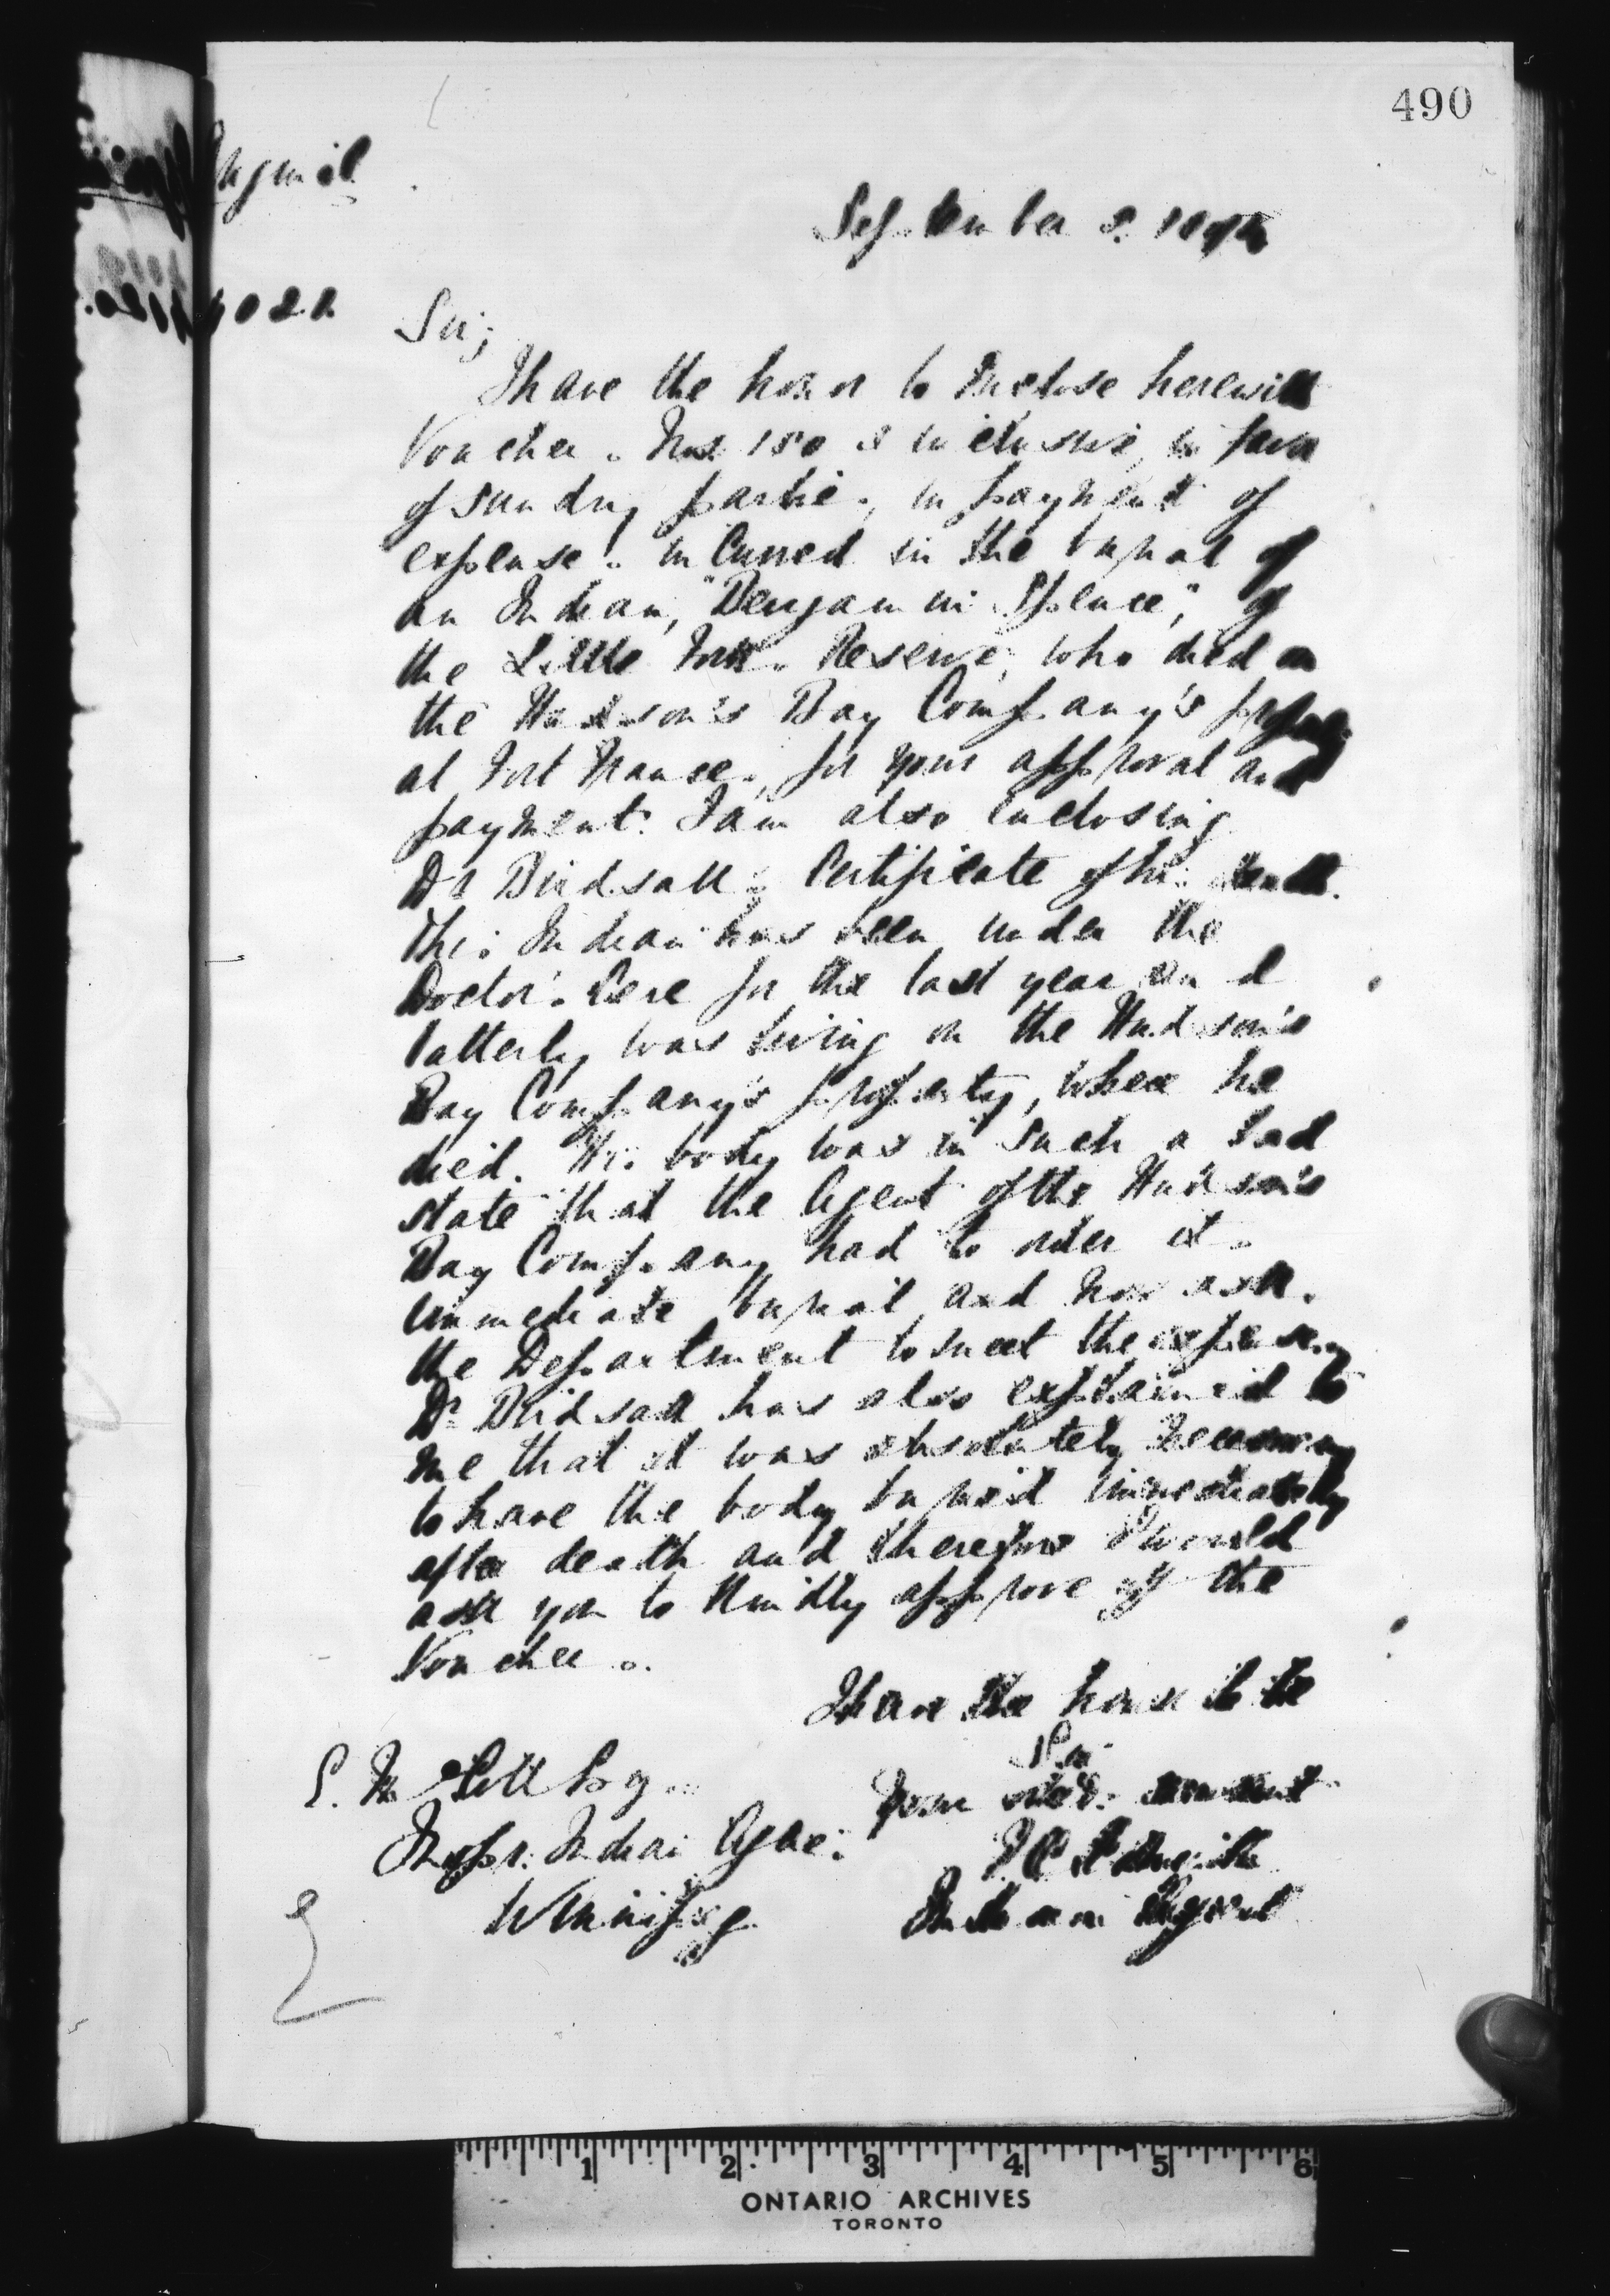 490
September 2. 18
Sir;
I have the honor to Inclose herewith
Vouchers Nos 150 & inclusive, in favor
of sundry parties, in payment of
expenses incurred in the burial of
an Indian, "Benjamin Spence", of
the Little Forks Reserve, who died on
the Hudson's Bay Company's property
at Fort Frances, for your approval and
payment. I am also enclosing
Dr Birdsall's Certificate of his death.
This Indian has been under the
Doctor's Care for the last year and
latterly was living on the Hudson's
Bay Company's property, where he
died. His body was in such a bad
state that the Agent of the Hudson's
Bay Company had to order its
immediate burial and now asks
the Department to meet the expenses,
Dr Birdsall has also explained to
me that it was absolutely necessary
to have the body buried immediately
after death and therefore I would
ask you to kindly approve of the
Vouchers.
I have the honor to be
Sir
Your obed. servant
Indian Agent
Esq.
Inspr. Indian Agcs.
Winnipeg
1 2 3 4 5 6
ONTARIO ARCHIVES
TORONTO